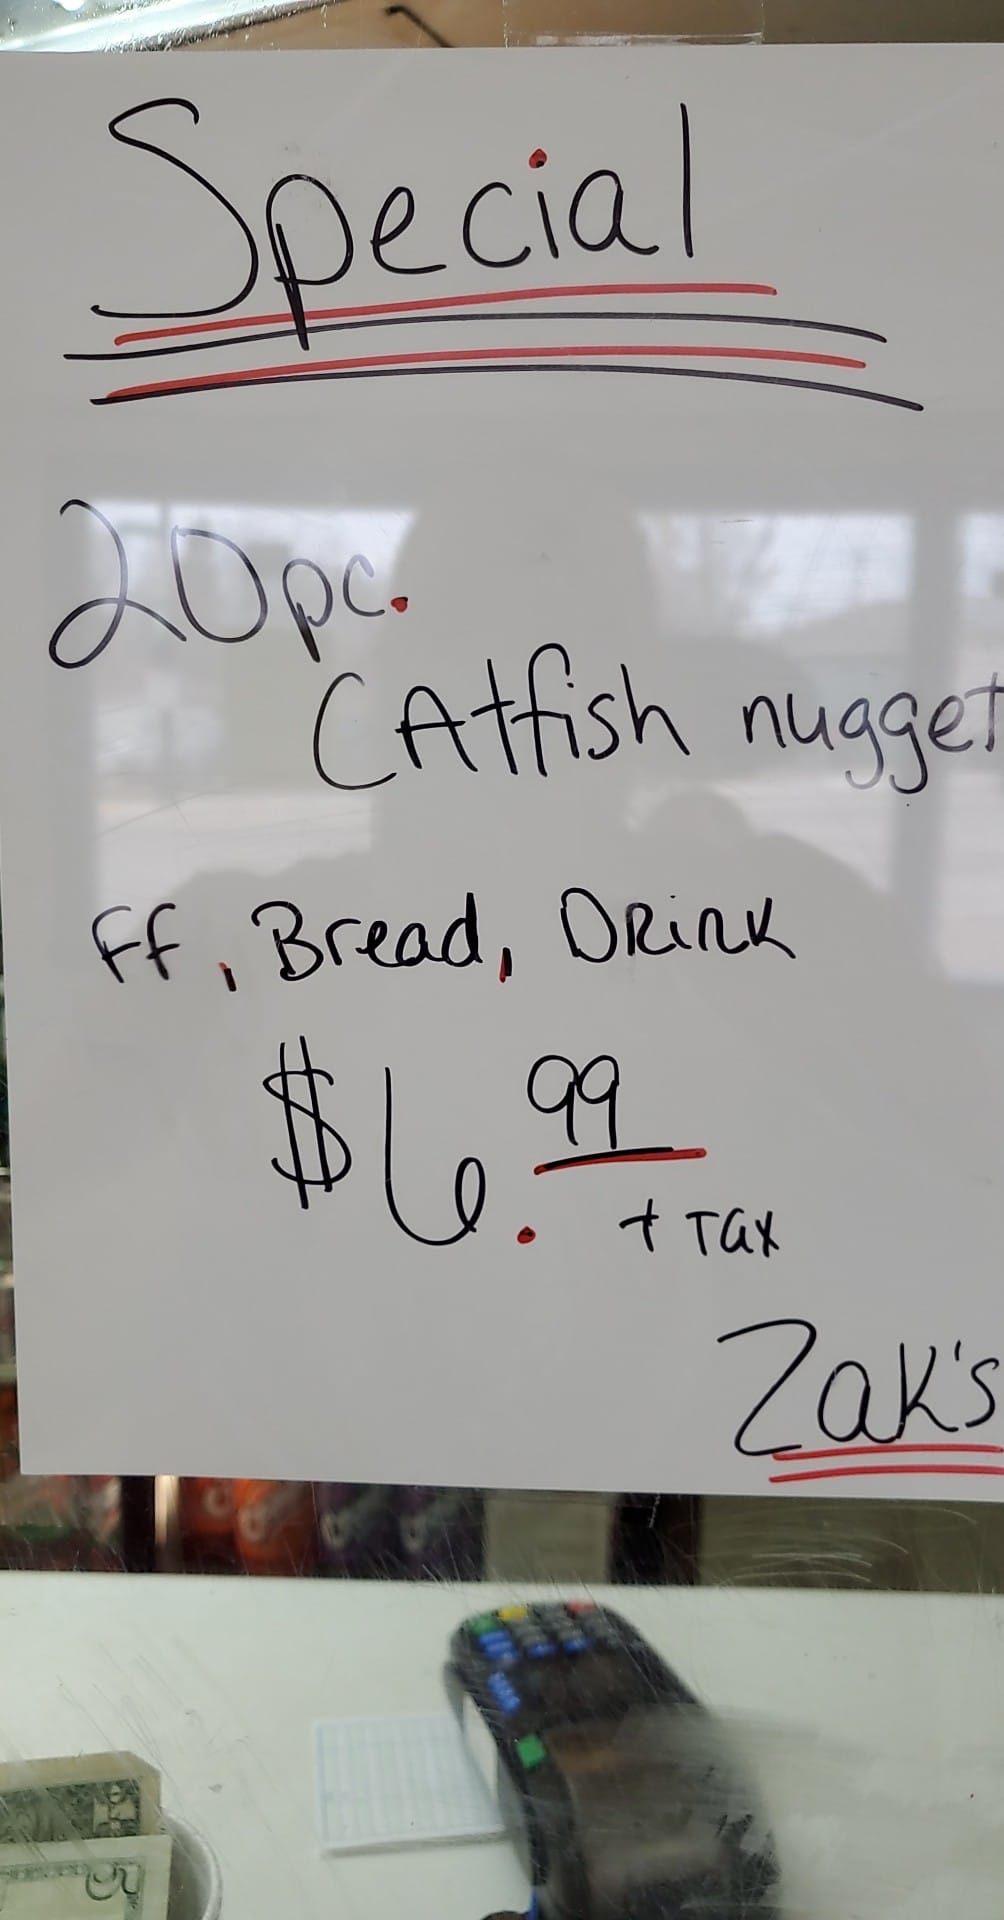 Special
20pc.
CAtfish nugget
FF, Bread, DRink
$6.99
+ Tax
Zak's